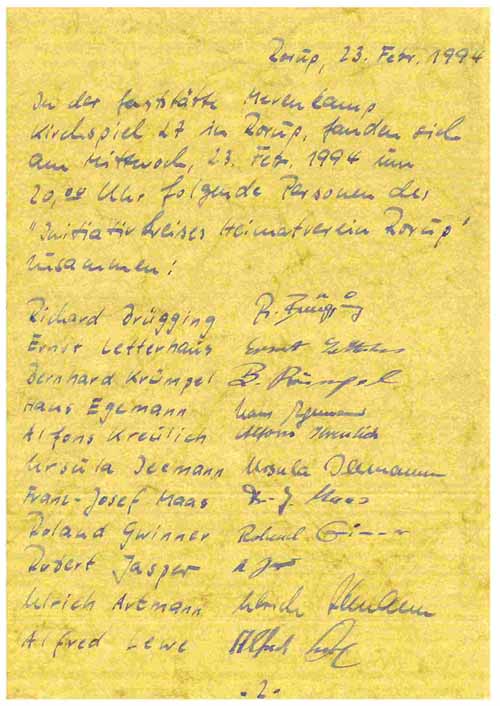 Rorup, 23. Febr. 1994
In der Gaststätte Merenkamp
Kirchspiel 27 in Rorup, fanden sich
am Mittwoch, 23. Febr. 1994 um
20,04 Uhr folgende Personen des
"Initiativkreises Heimatverein Rorup"
zusammen:
Richard Brügging
Ernst Letterhaus Ernst Letterhaus
Bernhard Krümpel B. Krümpel
Hans Egemann Hans Egemann
Alfons Kreulich Alfons Kreulich
Ursula Isemann Ursula Isemann
Franz-Josef Maas Fr.-J. Maas
Roland Gwinner Roland
Robert Jasper
Ulrich Artmann Ulrich Artmann
Alfred Lewe Alfred Lewe
- 2 -